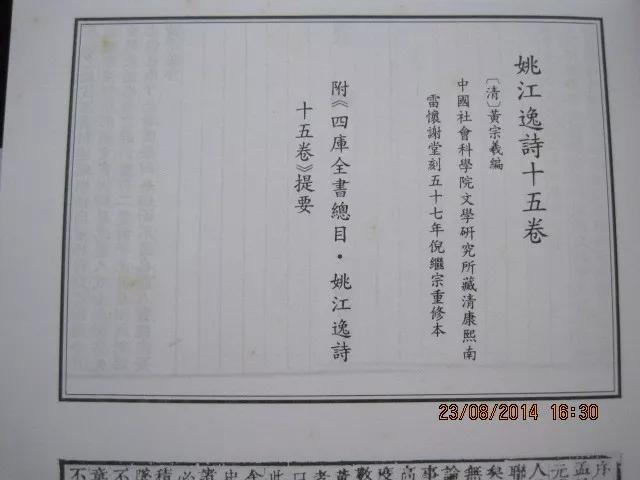 姚江逸詩十五卷
〔清〕黃宗羲編
中國社會科學院文學研究所藏清康熙南
雷懷謝堂刻五十七年倪繼宗重修本
附《四庫全書總目·姚江逸詩
十五卷》提要
23/08/2014 16:30